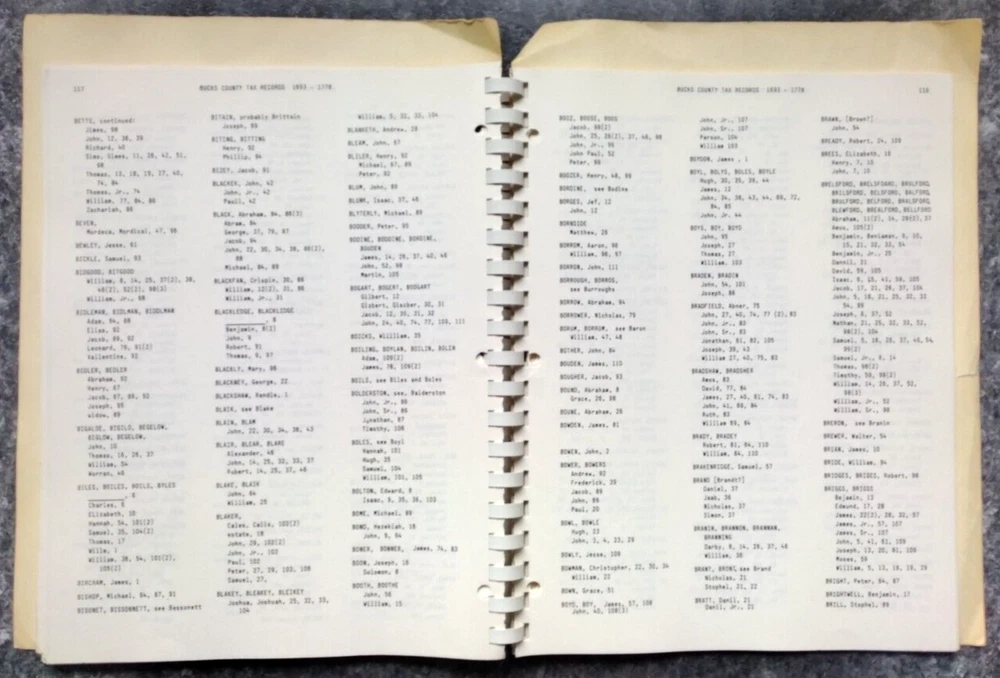 117
BUCKS COUNTY TAX RECORDS 1693 - 1778
BETTS, continued:
James, 98
John, 12, 38, 39
Richard, 40
Thomas, 13, 18, 19, 27, 40,
74, 84
Thomas, Jr., 74
William, 77, 84, 86
Zachariah, 86
BEVEN,
BEWLEY, Jesse, 61
BICKLE, Samuel, 93
BIDGOOD, BITGOOD
William, Jr., 68
BIDLEMAN, BIDLMAN, BIDDLMAN
Adam, 84, 88
Elias, 92
Jacob, 89, 92
Vallentine, 92
BIDLER, BEDLER
Abraham, 92
Henry, 87
Jacob, 87, 89, 92
Joseph, 95
widow, 89
BIGLOW, BEGELOW,
John, 10
Thomas, 18, 26, 37
William, 54
BILES, BOILES, BOILS, BYLES
Charles, 5
Elizabeth, 10
Hannah, 54, 101(2)
Samuel, 35, 104(2)
Thomas, 17
William, 38, 54, 101(2),
105(2)
BIRCHAM, James, 1
BISHOP, Michael, 84, 87, 91
BISSONET, BISSONNETT, see Bessonett
BITAIN, probably Brittain
Joseph, 99
BITING, BITTING
Henry, 92
Phillip, 84
BIZEY, Jacob, 91
BLACKER, John, 42
John, Jr., 42
Paull, 42
BLACK, Abraham, 84, 88(3)
Abram, 84
George, 37, 79, 87
Jacob, 84
John, 22, 30, 34, 38, 86(2),
88
Michael, 84, 89
BLACKFAN, Crispin, 30, 86
William, 12(2), 31, 86
William, Jr., 31
BLACKLEDGE, BLACKLEDGE
Benjamin, 8(2)
John, 9
Robert, 91
Thomas, 9, 97
BLACKLY, Mary, 98
BLACKNEY, George, 22
BLACKSHAW, Randle, 1
BLAIK, see Blake
BLAIN, BLAM
John, 22, 30, 34, 38, 43
BLAIR, BLEAR, BLARE
Alexander, 46
John, 14, 25, 32, 33, 37
Robert, 14, 25, 37, 46
BLAKE, BLAIK
John, 84
William, 25
BLAKER,
Cales, Calls, 102(2)
estate, 18
John, 29, 102(2)
John, Jr., 102
Paul, 102
Peter, 17, 29, 102, 108
Samuel, 27,
BLAKEY, BLEAKEY, BLEIKEY
Joshua, Joshuah, 25, 32, 33,
104
William, 9, 32, 33, 104
BLANKETH, Andrew, 28
BLEAM, John, 57
BLILER, Henry, 92
Michael, 87, 89
Peter, 92
BLUM, John, 89
BLUNK, Isaac, 37, 46
BLYTERLY, Michael, 89
BODDER, Peter, 95
BODINE, BODDINE, BORDINE,
BOUDEN
James, 14, 26, 37, 40, 46
John, 52, 98
Martin, 105
BOGART, BOGERT, BOGGART
Gilbert, 12
Gisbert, Gisiber, 30, 31
Jacob, 12, 30, 31, 32
John, 24, 40, 74, 77, 109, 111
BOGICKS, William, 35
BOILING, BOYLAN, BOILIN, BOLEN
Adam, 109(2)
James, 78, 109(2)
BOILS, see Biles and Boles
BOLDERSTON, see, Balderston
John, Jr., 86
John, Sr., 86
Jonathan, 87
Timothy, 106
BOLES, see Boyl
Hannah, 101
Hugh, 35
Samuel, 104
William, 101, 105
BOLTON, Edward, 9
Isaac, 9, 35, 36, 103
BOME, Michael, 89
BOND, Hezekiah, 18
John, 9, 84
BONER, BONNER, James, 74, 83
BOON, Joseph, 16
Solomon, 6
BOOTH, BOOTHE
John, 56
William, 15
BUCKS COUNTY TAX RECORDS 1693 - 1778
118
BOOZ, BOOSE, BOOS
Jacob, 98(2)
John, 25, 28(2), 37, 46, 98
John, Jr., 95
John Paul, 52
Peter, 98
BOOZER, Henry, 48, 86
BORDINE, see Bodine
BORGES, Jef, 12
John, 12
BORNSIDE
Matthew, 28
BORROM, Aaron, 96
William, 96, 97
BORRON, John, 111
BORROUGH, BORROS,
see Burroughs
BORROW, Abraham, 94
BORROWER, Nicholas, 75
BORUM, BORRUM, see Baron
William, 47, 48
BOTHER, John, 84
BOUDEN, James, 110
BOUGHER, Jacob, 93
BOUND, Abraham, 8
Grace, 26, 98
BOUNE, Abraham, 26
BOWDEN, James, 81
BOWEN, John, 2
BOWER, BOWERS
Andrew, 92
Frederick, 29
Jacob, 89
John, 86
Paul, 20
BOWL, BOWLE
Hugh, 23
John, 2, 4, 23, 29
BOWLY, Jesse, 109
BOWMAN, Christopher, 22, 30, 34
William, 22
BOWN, Grace, 51
BOYD, BOY, James, 57, 108
John, 40, 108(3)
John, Jr., 107
John, Sr., 107
Parson, 104
William 103
BOYDON, James, 1
BOYL, BOLYS, BOLES, BOYLE
Hugh, 30, 35, 39, 44
James, 12
John, 34, 38, 43, 44, 66, 72,
84, 85
John, Jr. 44
BOYS, BOY, BOYD
John, 95
Joseph, 27
Thomas, 27
William, 103
BRADEN, BRADIN
John, 54, 101
Joseph, 88
BRADFIELD, Abner, 75
John, 27, 40, 74, 77 (2), 83
John, Jr., 83
John, Sr., 83
Jonathan, 81, 82, 105
Joseph, 39, 43
William 27, 40, 75, 83
BRADSHAW, BRADSHER
Amos, 83
David, 77, 84
James, 27, 40, 81, 74, 83
John, 41, 69, 84
Ruth, 83
William 69, 84
BRADY, BRADEY
Robert, 81, 84, 110
William, 84, 110
BRAKENRIDGE, Samuel, 57
BRAND [Brandt?]
Daniel, 37
Nicholas, 37
Simon, 37
BRANEN, BRANNON, BRANNAN,
BRANNING
Darby, 8, 14, 26, 37, 46
William, 36
BRANT, BRONG, see Brand
Nicholas, 21
Stophel, 21, 22
BRATT, Danil, 21
Danil, Jr., 21
BRAWN, [Brown?]
John, 54
BREADY, Robert, 24, 109
BREES, Elizabeth, 10
Henry, 7, 10
John, 7, 10
BRELSFORD, BRELSFOARD, BRULFORD,
BRILSFORD, BELSFORD, BALFORD,
BRULFORD, BELFORD, BALSFORD,
BLEWFORD, BREALFORD, BELLFORD
Abraham, 11(2), 14, 28(2), 37
Amos, 105(2)
Benjamin, Benjaman, 8, 10,
15, 21, 32, 33, 54
Benjamin, Jr., 25
Dannil, 21
David, 56, 105
Isaac, 9, 15, 41, 56, 105
Jacob, 17, 21, 26, 37, 104
John, 9, 16, 21, 25, 32, 33
54, 86
Joseph, 8, 37, 52
Nathan, 21, 25, 32, 33, 52,
98(2), 104
Samuel, 8, 16, 26, 37, 46, 54,
99(2)
Samuel, Jr., 8, 14
Thomas, 98(2)
Timothy, 98, 99(2)
William, 14, 26, 37, 52,
98(3)
William, Jr., 52
William, Sr., 98
BRERON, see Branin
BREWER, Walter, 54
BRIAN, James, 10
BRIDE, William, 94
BRIDGES, BRIGES, Robert, 96
BRIGGS, BRIGGS
Bejamin, 13
Edmund, 17, 28
James, 22(2), 28, 32, 57
James, Jr., 57, 107
James, Sr., 107
John, 5, 41, 81, 109
Joseph, 13, 20, 81, 109
Moses, 59
William, 5, 13, 18, 28, 29
BRIGHT, Peter, 84, 87
BRIGHTWELL, Benjamin, 17
BRILL, Stophel, 89